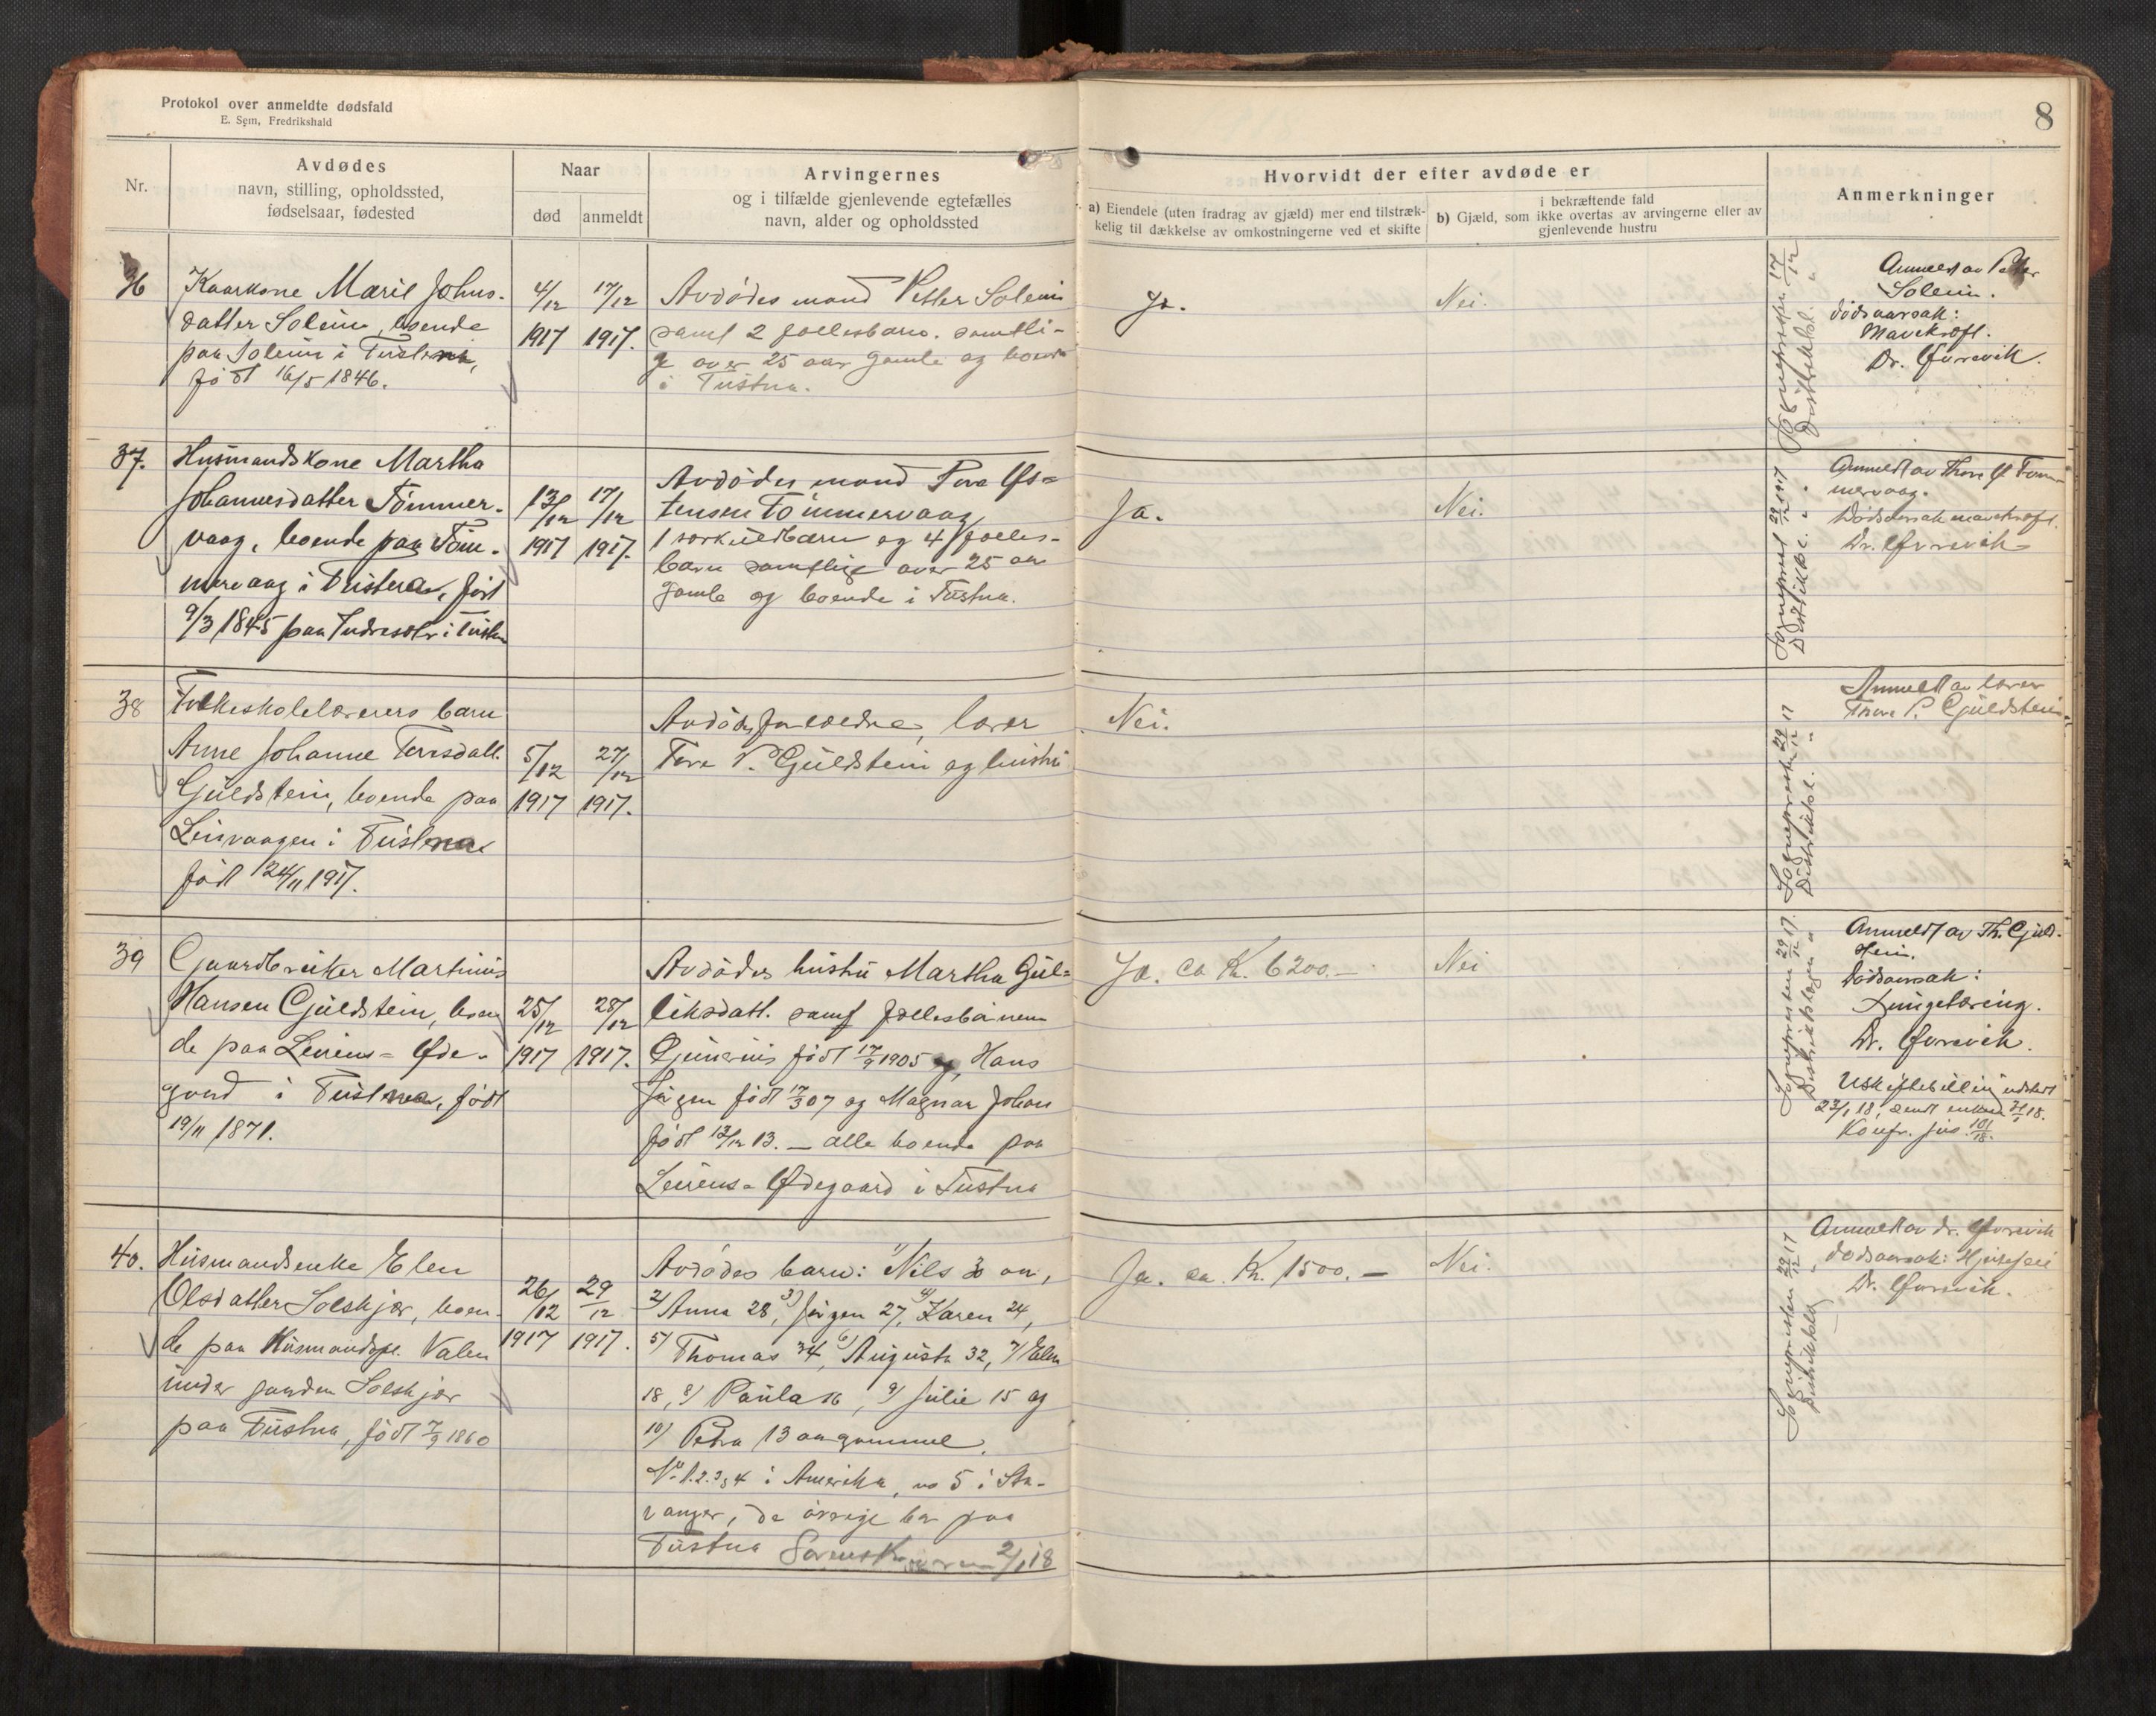 Protokol over anmeldte dødsfald
E. Sem, Fredrikshald
8
Nr.
Avdødes
navn, stilling, opholdssted,
fødselsaar, fødested
Naar
død
anmeldt
Arvingernes
og i tilfælde gjenlevende egtefælles
navn, alder og opholdssted
Hvorvidt der efter avdøde er
a) Eiendele (uten fradrag av gjæld) mer end tilstræk-
kelig til dækkelse av omkostningerne ved et skifte
i bekræftende fald
b) Gjæld, som ikke overtas av arvingerne eller av
gjenlevende hustru
Anmerkninger
36
Kaarkone Marit Johns-
datter Solein, boende
paa Solein i Tustna,
født 16/5 1846.
4/12
1917
17/12
1917.
Avdødes mand Petter Solein
samt 2 fællesbarn. samtli-
ge over 25 aar gamle og boende
i Tustna.
Ja.
Nei.
Sognepresten 17/12
Distriktsl. "
Anmeldt av Petter
Solein.
Dödsaarsak:
Mavekræft.
Dr. Øvrevik.
37.
Husmandskone Martha
Johannesdatter Tömmer-
vaag, boende paa Töm-
mervaag i Tustna, født
9/3 1845 paa
13/12
1917
17/12
1917.
Avdödes mand Tore Øs-
tensen Tömmervaag
1 særkuldbarn og 4 fælles-
barn samtlige over 25 aar
gamle og boende i Tustna.
Ja.
Nei.
Sogneprest 29/12 1917
Distriktsl. "
Anmeldt av Thore Ø Töm-
mervaag.
Dödsaarsak mavekræft.
Dr. Øvrevik
38
Folkeskolelærers barn
Anne Johanne Toresdatt.
Gjuldstein, boende paa
Leirvaagen i Tustna
født 24/11 1917.
5/12
1917
27/12
1917.
Avdödes forældre, lærer
Tore P. Gjuldstein og hustru
Nei.
Sognepresten 29/12 17
Distriktsl. "
Anmeldt av lærer
Tore P. Gjuldstein.
39
Gaardbruker Martinus
Hansen Gjuldstein, boen
de paa Leirens- Øde-
gaard i Tustna, født
19/11 1871.
25/12
1917
28/12
1917.
Avdödes hustru Martha Gul-
liksdatt. samt fællesbarnene
Gunerius født 17/9 1905, Hans
Jörgen født 17/3 07 og Magnar Johan
født 13/12 13. — alle boende paa
Leirens- Ødegaard i Tustna
Ja. ca Kr. 6200.—
Nei
Sognepresten 29/12 17.
Distriktslægen "
Anmeldt av Th. Gjuld-
stein.
Dödsaarsak:
Lungetæring.
Dr. Øvrevik.
Uskiftebevilling utstedt
23/1 18, sendt enken 24/1 18.
Konfr. jno. 101/18.
40.
Husmandsenke Elen
Olsdatter Solskjær, boen-
de paa Husmandspl. Valen
under gaarden Solskjær
paa Tustna, født 7/9 1860
26/12
1917
29/12
1917.
Avdödes barn: 1) Nils 30 aar,
2) Anna 28, 3) Jörgen 27, 4) Karen 24,
5) Thomas 34, 6) Augusta 32, 7) Elen
18, 8) Paula 16, 9) Julie 15 og
10) Petra 13 aar gammel.
No 1.2.3 & 4 i Amerika, no 5 i Sta-
vanger, de övrige bor paa
Tustna Sorenskriveren 2/1 18
Ja. ca. Kr. 1500.—
Nei.
Sognepresten 29/12 17
Distriktsl. "
Anmeldt av dr. Øvrevik
Dödsaarsak: Hjertefeil
Dr. Øvrevik.